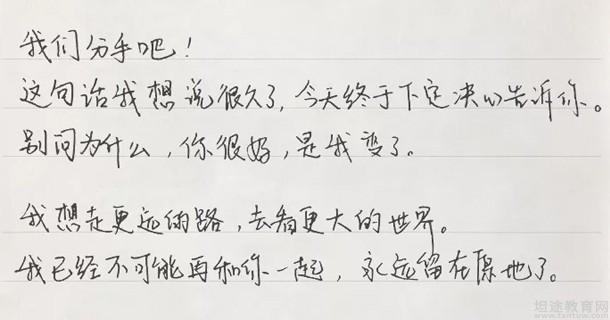 我们分手吧！
这句话我想说很久了，今天终于下定决心告诉你。
别问为什么，你很好，是我变了。
我想走更远的路，去看更大的世界。
我已经不可能再和你一起，永远留在原地了。
坦途教育网
www.tantuw.com